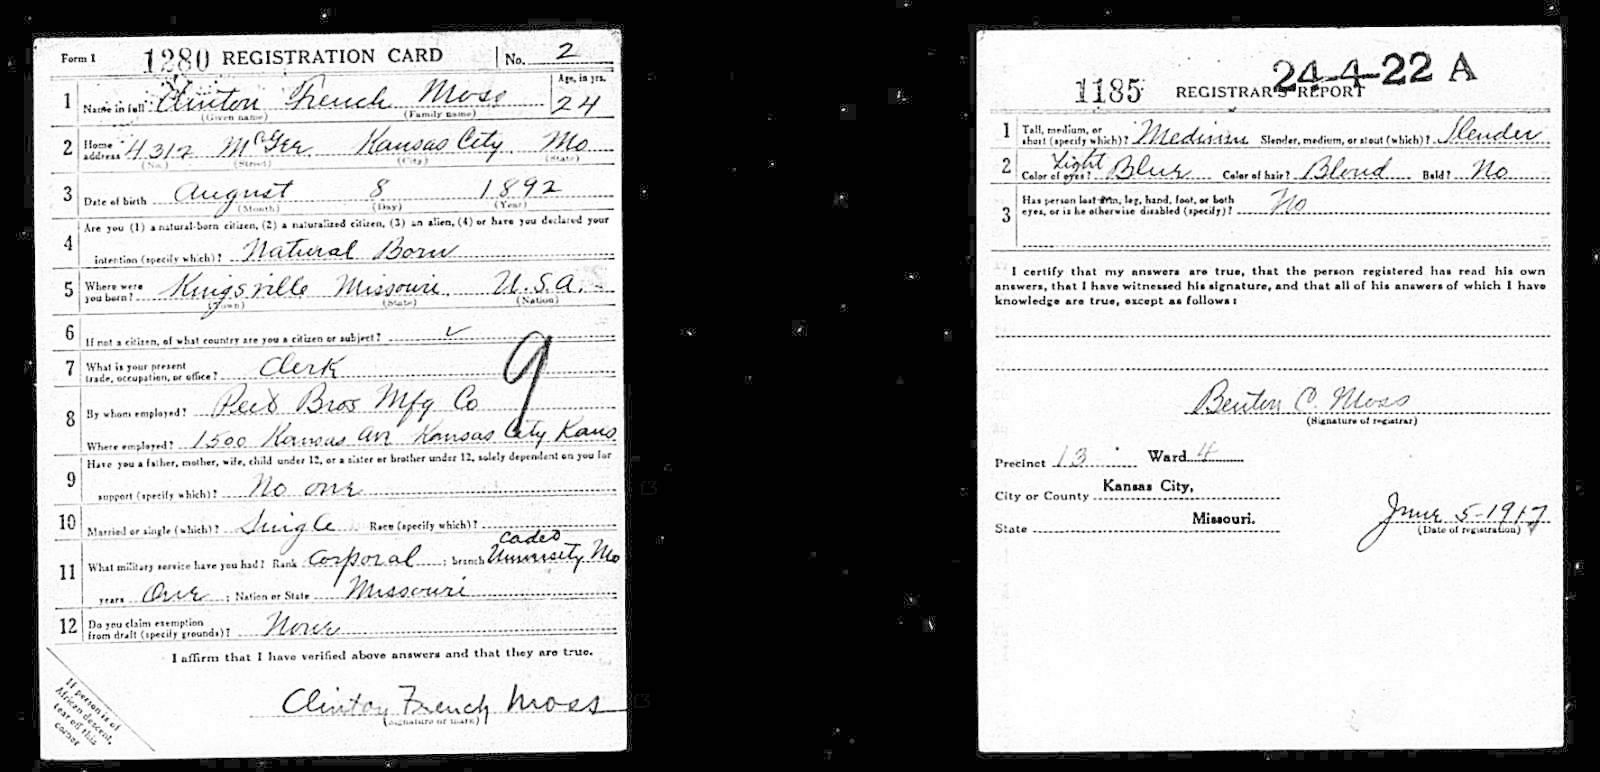 Form 1 1280 REGISTRATION CARD No. 2
1 Name in full Clinton French Moss Age, in yrs. 24
(Given name) (Family name)
2 Home address 4312 McGee Kansas City Mo
(No.) (Street) (City) (State)
3 Date of birth August 8 1892
(Month) (Day) (Year)
4 Are you (1) a natural-born citizen, (2) a naturalized citizen, (3) an alien, (4) or have you declared your
intention (specify which)? Natural Born
5 Where were you born? Kingsville Missouri U.S.A.
(Town) (State) (Nation)
6 If not a citizen, of what country are you a citizen or subject? ✓
7 What is your present trade, occupation, or office? Clerk
9
8 By whom employed? Peet Bros Mfg Co
Where employed? 1500 Kansas Av Kansas City Kans
9 Have you a father, mother, wife, child under 12, or a sister or brother under 12, solely dependent on you for
support (specify which)? No one
10 Married or single (which)? Single Race (specify which)?
11 What military service have you had? Rank Corporal ; branch Cadet University Mo
years One ; Nation or State Missouri
12 Do you claim exemption from draft (specify grounds)? None
I affirm that I have verified above answers and that they are true.
Clinton French Moss
(Signature or mark)
If person is of
African descent,
tear off this
corner
24-4-22 A
1185 REGISTRAR'S REPORT
1 Tall, medium, or short (specify which)? Medium Slender, medium, or stout (which)? Slender
2 Color of eyes? Light Blue Color of hair? Blond Bald? No
3 Has person lost arm, leg, hand, foot, or both
eyes, or is he otherwise disabled (specify)? No
I certify that my answers are true, that the person registered has read his own
answers, that I have witnessed his signature, and that all of his answers of which I have
knowledge are true, except as follows:
Benton C. Moss
(Signature of registrar)
Precinct 13 Ward 4
City or County Kansas City,
State Missouri. June 5-1917
(Date of registration)